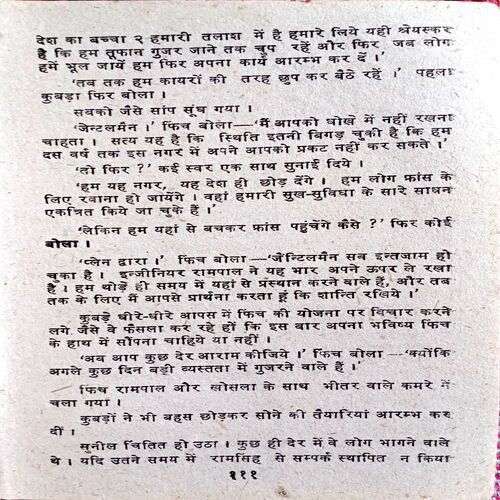 देश का बच्चा २ हमारी तलाश में है हमारे लिये यही श्रेयस्कर
है कि हम तूफान गुजर जाने तक चुप रहें और फिर जब लोग
हमें भूल जायें हम फिर अपना कार्य आरम्भ कर दें ।'
'तब तक हम कायरों की तरह छुप कर बैठे रहें ।' पहला
कुबड़ा फिर बोला ।
सबको जैसे सांप सूंघ गया ।
'जेन्टलमैन ।' फिच बोला—'मैं आपको धोखे में नहीं रखना
चाहता । सत्य यह है कि स्थिति इतनी बिगड़ चुकी है कि हम
दस वर्ष तक इस नगर में अपने आपको प्रकट नहीं कर सकते ।'
'तो फिर ?' कई स्वर एक साथ सुनाई दिये ।
'हम यह नगर, यह देश ही छोड़ देंगे । हम लोग फ्रांस के
लिए रवाना हो जायेंगे । वहां हमारी सुख-सुविधा के सारे साधन
एकत्रित किये जा चुके हैं ।'
'लेकिन हम यहां से बचकर फ्रांस पहुंचेंगे कैसे ?' फिर कोई
बोला ।
'प्लेन द्वारा ।' फिच बोला—'जेन्टिलमैन सब इन्तजाम हो
चुका है । इन्जीनियर रामपाल ने यह भार अपने ऊपर ले रखा
है । हम थोड़े ही समय में यहां से प्रस्थान करने वाले हैं, और तब
तक के लिए मैं आपसे प्रार्थना करता हूं कि शान्ति रखिये ।'
कुबड़े धीरे-धीरे आपस में फिच की योजना पर विचार करने
लगे जैसे वे फैसला कर रहे हों कि इस बार अपना भविष्य फिच
के हाथ में सौंपना चाहिये या नहीं ।
'अब आप कुछ देर आराम कीजिये ।' फिच बोला—'क्योंकि
अगले कुछ दिन बड़ी व्यस्तता में गुजरने वाले हैं ।'
फिच रामपाल और खोसला के साथ भीतर वाले कमरे में
चला गया ।
कुबड़ों ने भी बहस छोड़कर सोने की तैयारियां आरम्भ कर
दीं ।
सुनील चिंतित हो उठा । कुछ ही देर में वे लोग भागने वाले
थे । यदि उतने समय में रामसिंह से सम्पर्क स्थापित न किया
१११